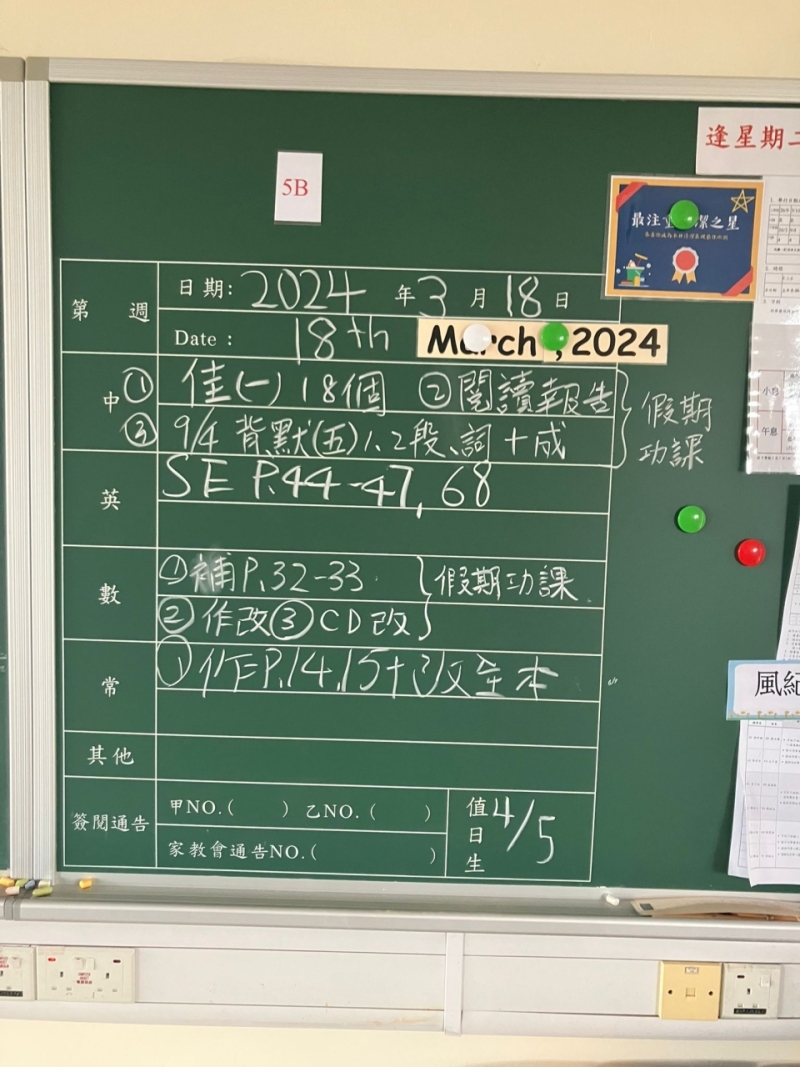 逢星期二
5B
最注重 潔之星
第 週
日期: 2024 年 3 月 18 日
Date : 18th March ,2024
中 ① 佳(一) 18個 ② 閱讀報告
③ 9/4 背默(五) 1、2段、詞+成
} 假期功課
英
SE P.44-47, 68
數
① 補P.32-33
② 作改 ③ CD改
} 假期功課
常
① 作P.14,15+改全本
其他
簽閱通告
甲NO.( ) 乙NO.( )
家教會通告NO.( )
值日生 4/5
小息
午息
風紀